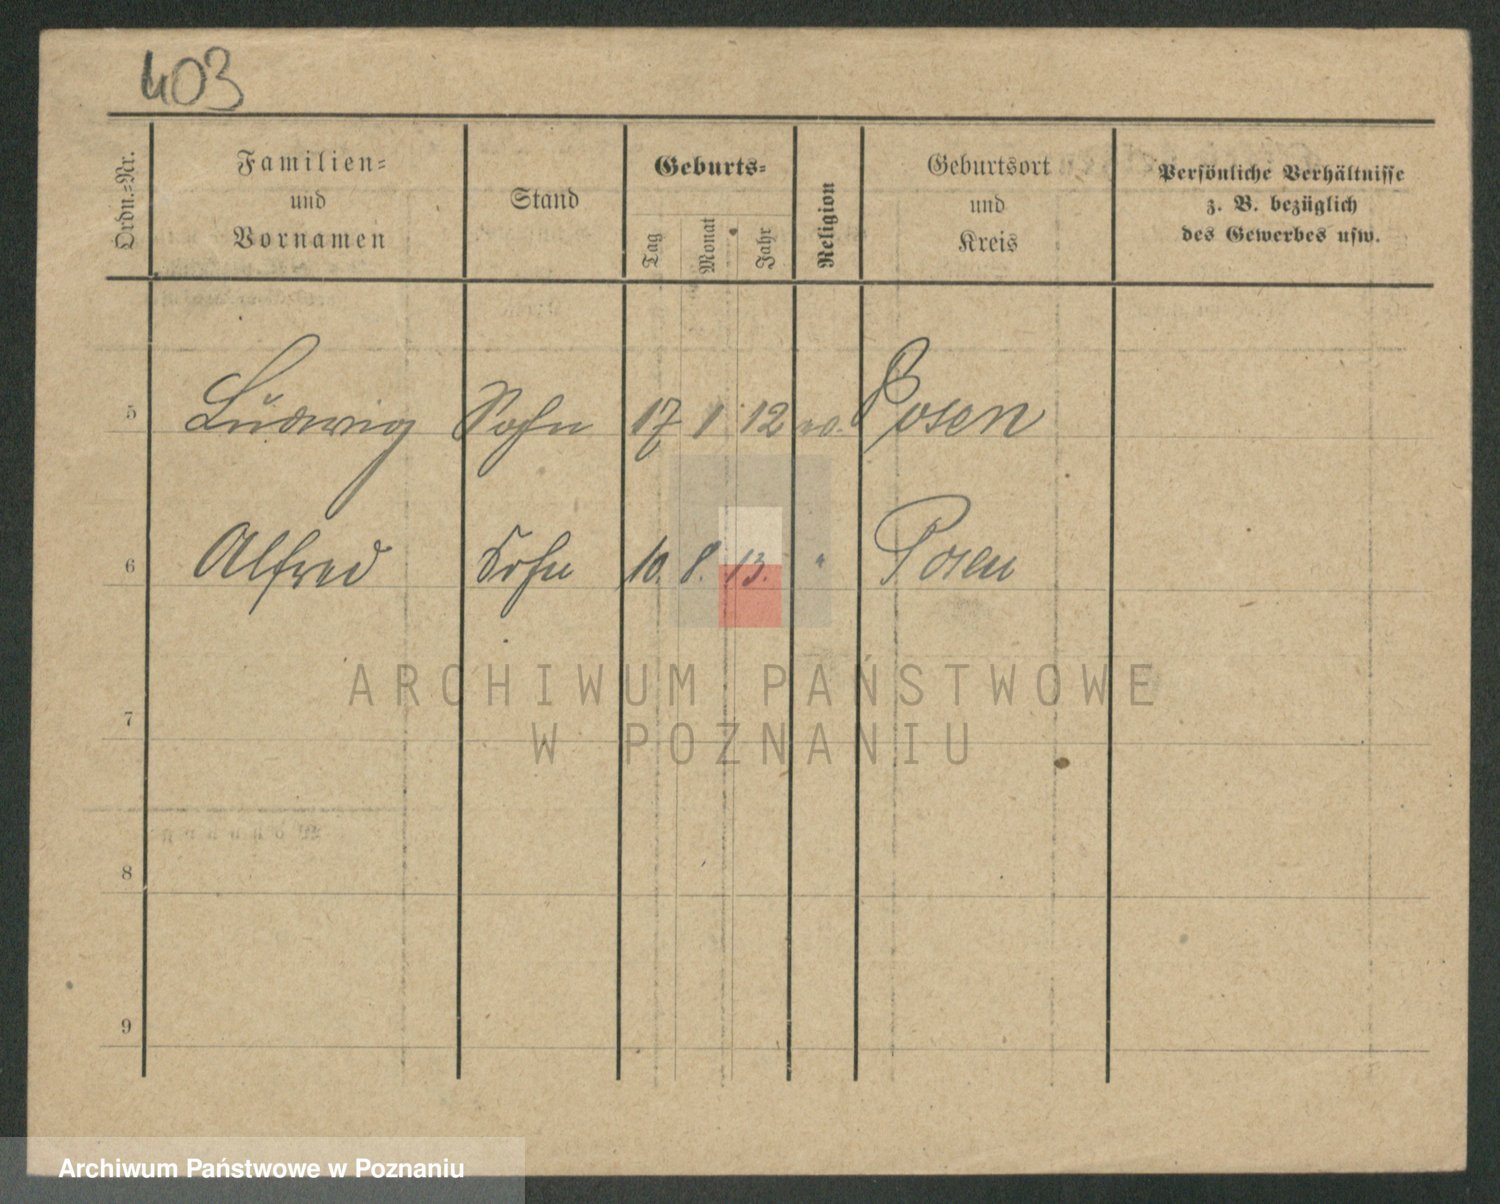 403
Ordn.=Nr.
Familien=
und
Vornamen
Stand
Geburts=
Tag
Monat
Jahr
Religion
Geburtsort
und
Kreis
Persönliche Verhältnisse
z. B. bezüglich
des Gewerbes usw.
5 Ludwig Sohn 17 1 12 Posen
6 Alfred Sohn 10. 8. 13. " Posen
ARCHIWUM PAŃSTWOWE
W POZNANIU
7
8
9
Archiwum Państwowe w Poznaniu